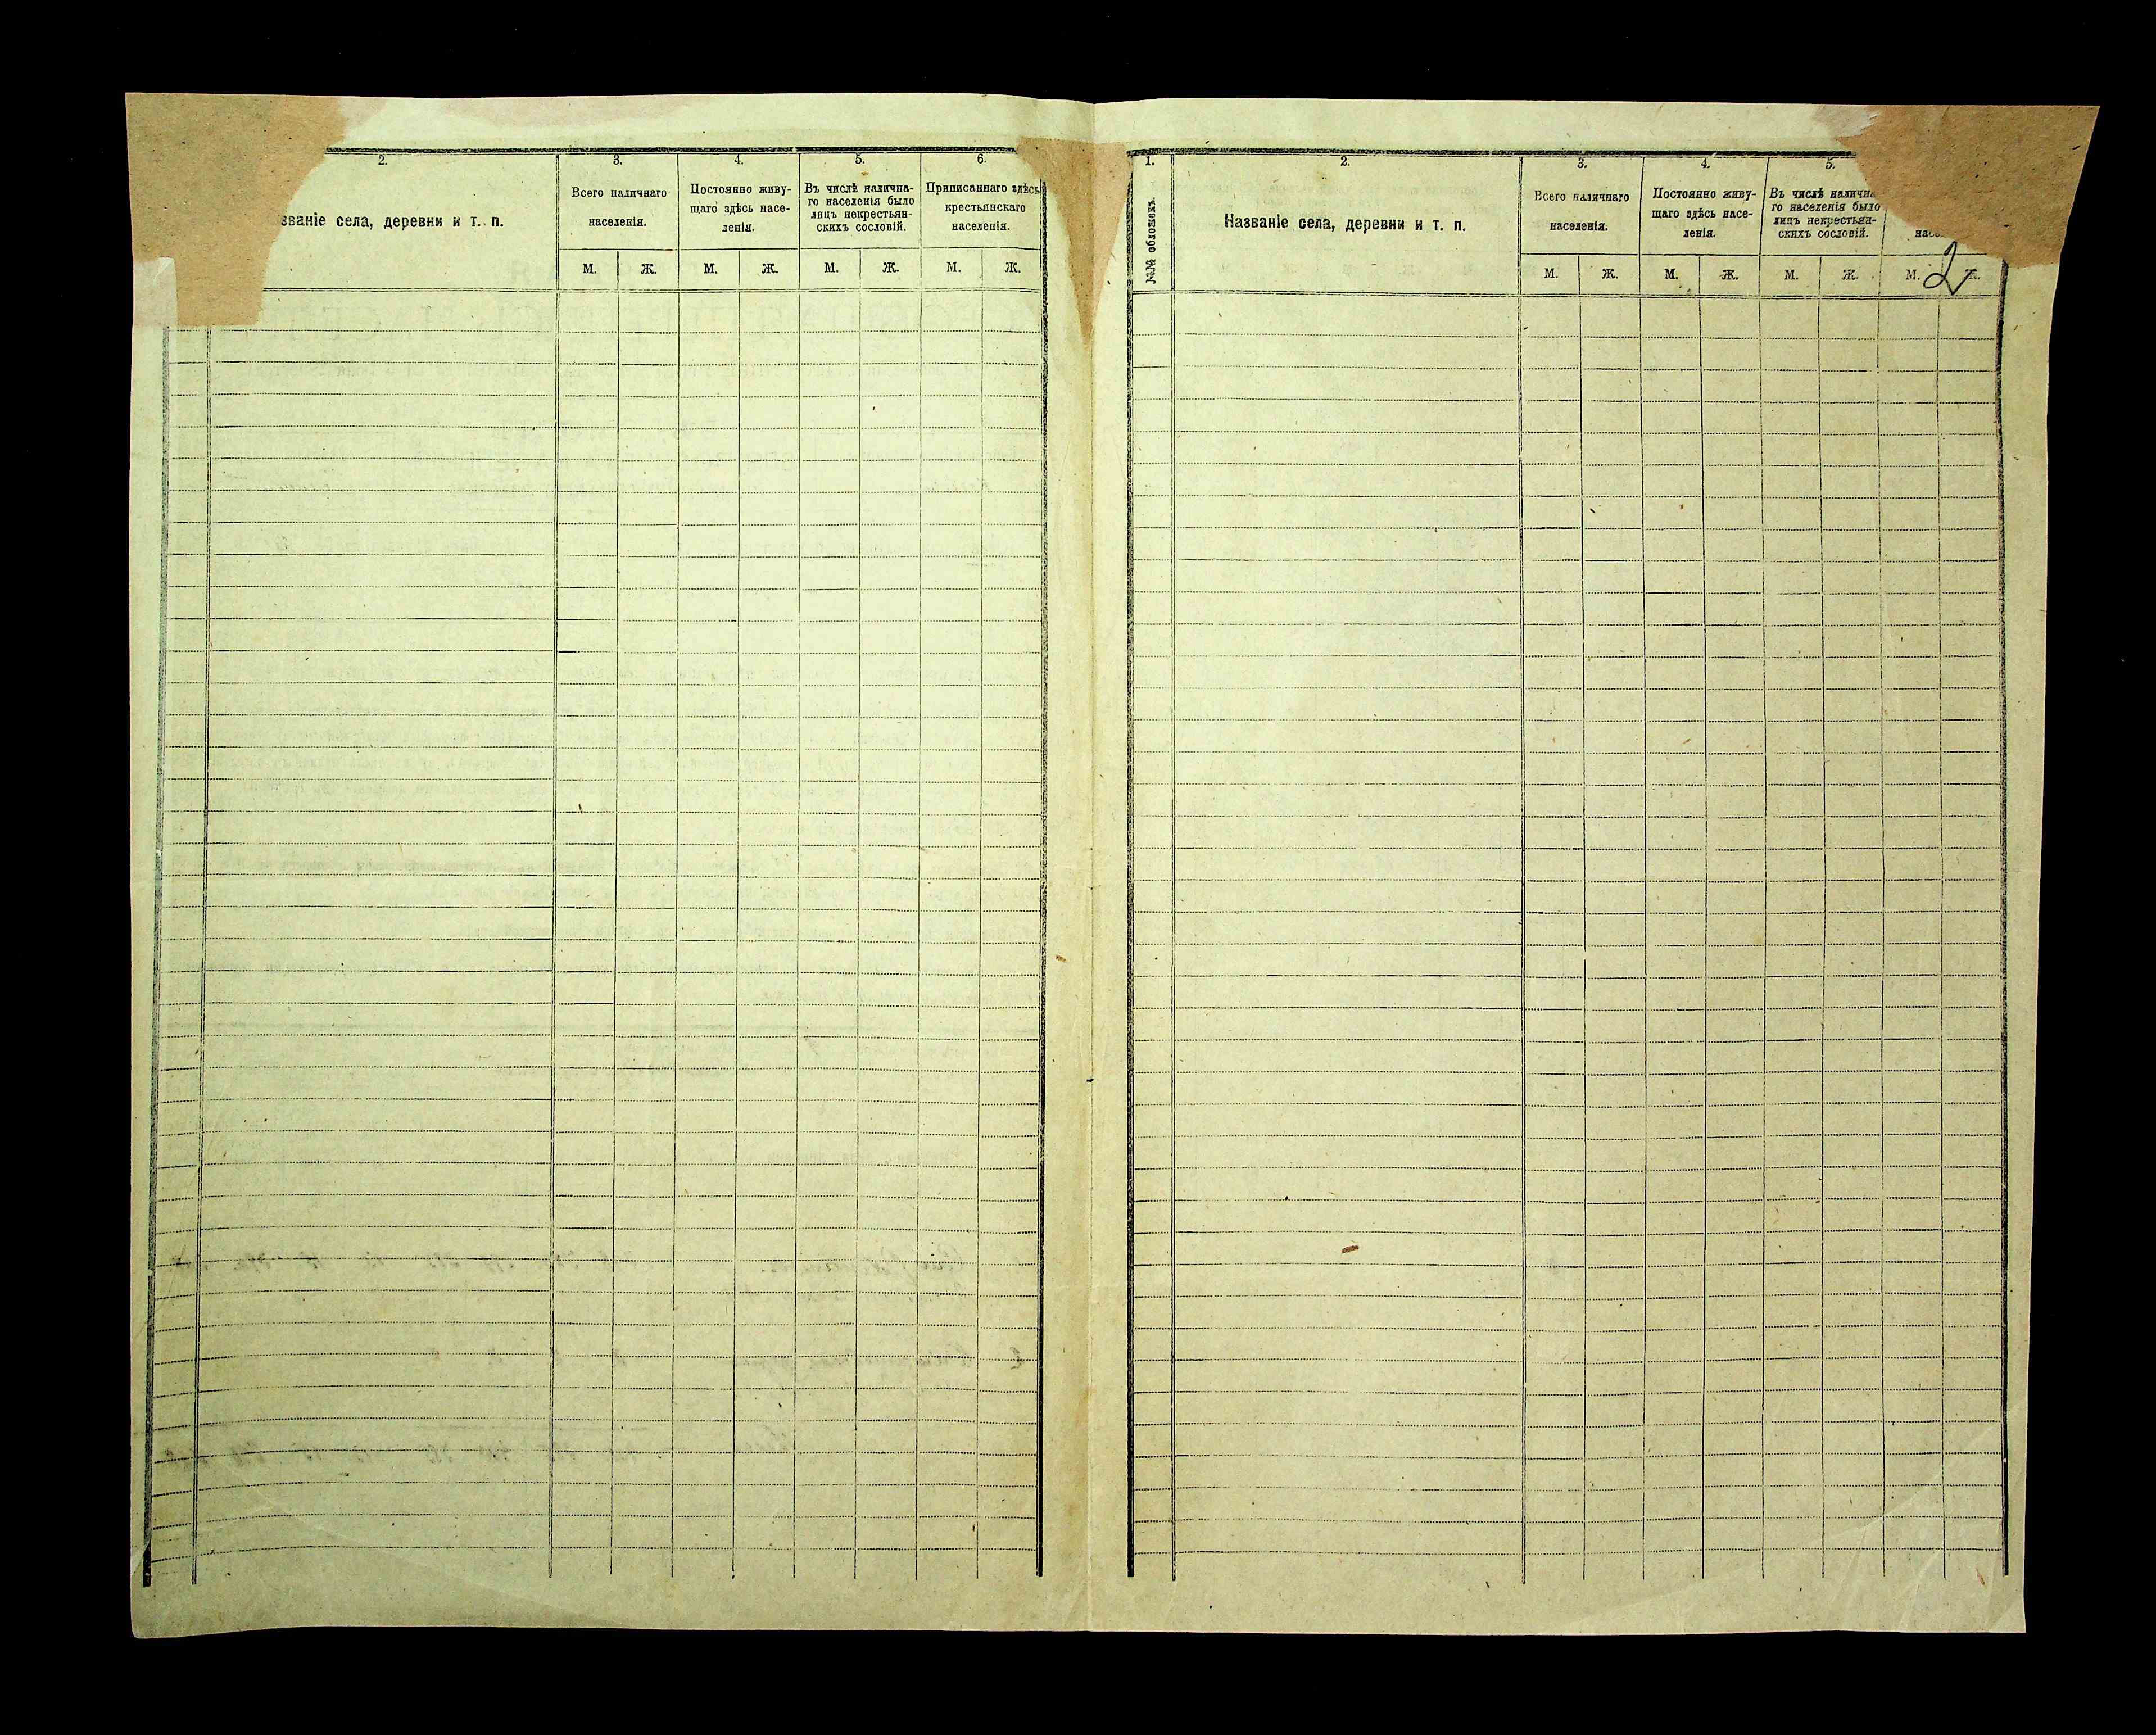 2. 3. 4. 5. 6.
Всего наличнаго
населенія.
Постоянно живу-
щаго здѣсь насе-
ленія.
Въ числѣ наличиа-
го населенія было
лицъ некрестьян-
скихъ сословій.
Приписаннаго здѣсь
крестьянскаго
населенія.
званіе села, деревни и т. п.
М. Ж. М. Ж. М. Ж. М. Ж.
1. 2. 3. 4. 5.
№№ обложекъ.
Названіе села, деревни и т. п.
Всего наличнаго
населенія.
Постоянно живу-
щаго здѣсь насе-
ленія.
Въ числѣ наличн
го населенія было
лицъ некрестьян-
скихъ сословій.
насе
М. Ж. М. Ж. М. Ж. М. Ж.
2